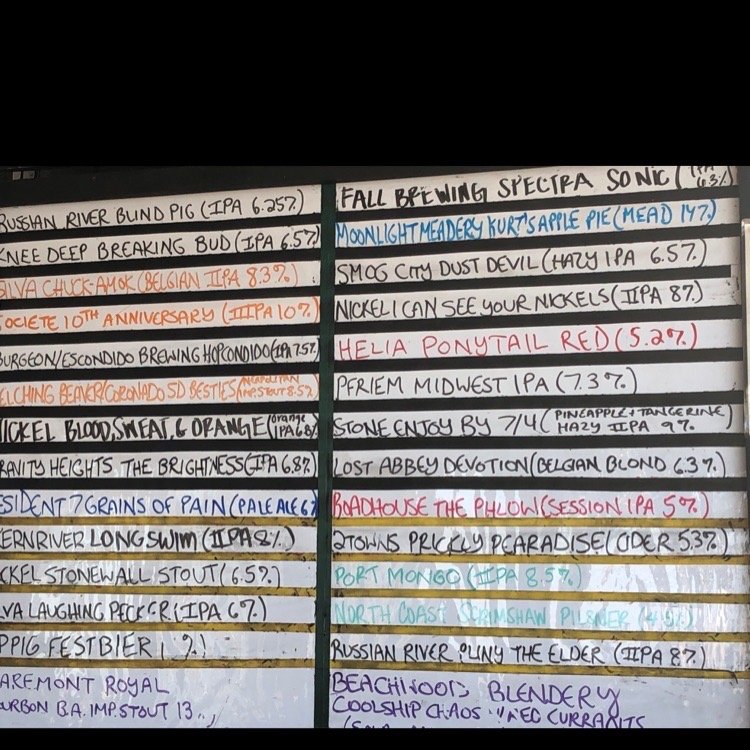 RUSSIAN RIVER BLIND PIG (IPA 6.25%)
KNEE DEEP BREAKING BUD (IPA 6.5%)
ALVA CHUCK-AMOK (BELGIAN IIPA 8.3%)
SOCIETE 10TH ANNIVERSARY (IIIPA 10%)
BURGEON/ESCONDIDO BREWING HOPCONDIDO (IPA 7.5%)
ELCHING BEAVER/CORONADO SD BESTIES (NEAPOLITAN IMP. STOUT 8.5%)
NICKEL BLOOD, SWEAT, & ORANGE (orange IPA 6.8%)
RAVITY HEIGHTS THE BRIGHTNESS (IPA 6.8%)
ESIDENT 7 GRAINS OF PAIN (PALE ALE 6%
KERN RIVER LONG SWIM (IIPA 8%)
CKEL STONEWALL STOUT (6.5%)
LVA LAUGHING PECKER (IPA 6%)
PPIG FESTBIER ( %)
AREMONT ROYAL
URBON B.A. IMP. STOUT 13
FALL BREWING SPECTRA SONIC (IPA 6.3%)
MOONLIGHT MEADERY KURT'S APPLE PIE (MEAD 14%)
SMOG CITY DUST DEVIL (HAZY IPA 6.5%)
NICKEL I CAN SEE YOUR NICKELS (IIPA 8%)
HELIA PONYTAIL RED (5.2%)
PFRIEM MIDWEST IPA (7.3%)
STONE ENJOY BY 7/4 (PINEAPPLE + TANGERINE HAZY IIPA 9%)
LOST ABBEY DEVOTION (BELGIAN BLOND 6.3%)
ROADHOUSE THE PHLOW (SESSION IPA 5%)
2TOWNS PRICKLY PEARADISE (CIDER 5.3%)
PORT MONGO (IIPA 8.5%)
NORTH COAST SCRIMSHAW PILSNER (4.5%)
RUSSIAN RIVER PLINY THE ELDER (IIPA 8%)
BEACHWOOD BLENDERY
COOLSHIP CHAOS CURRANTS